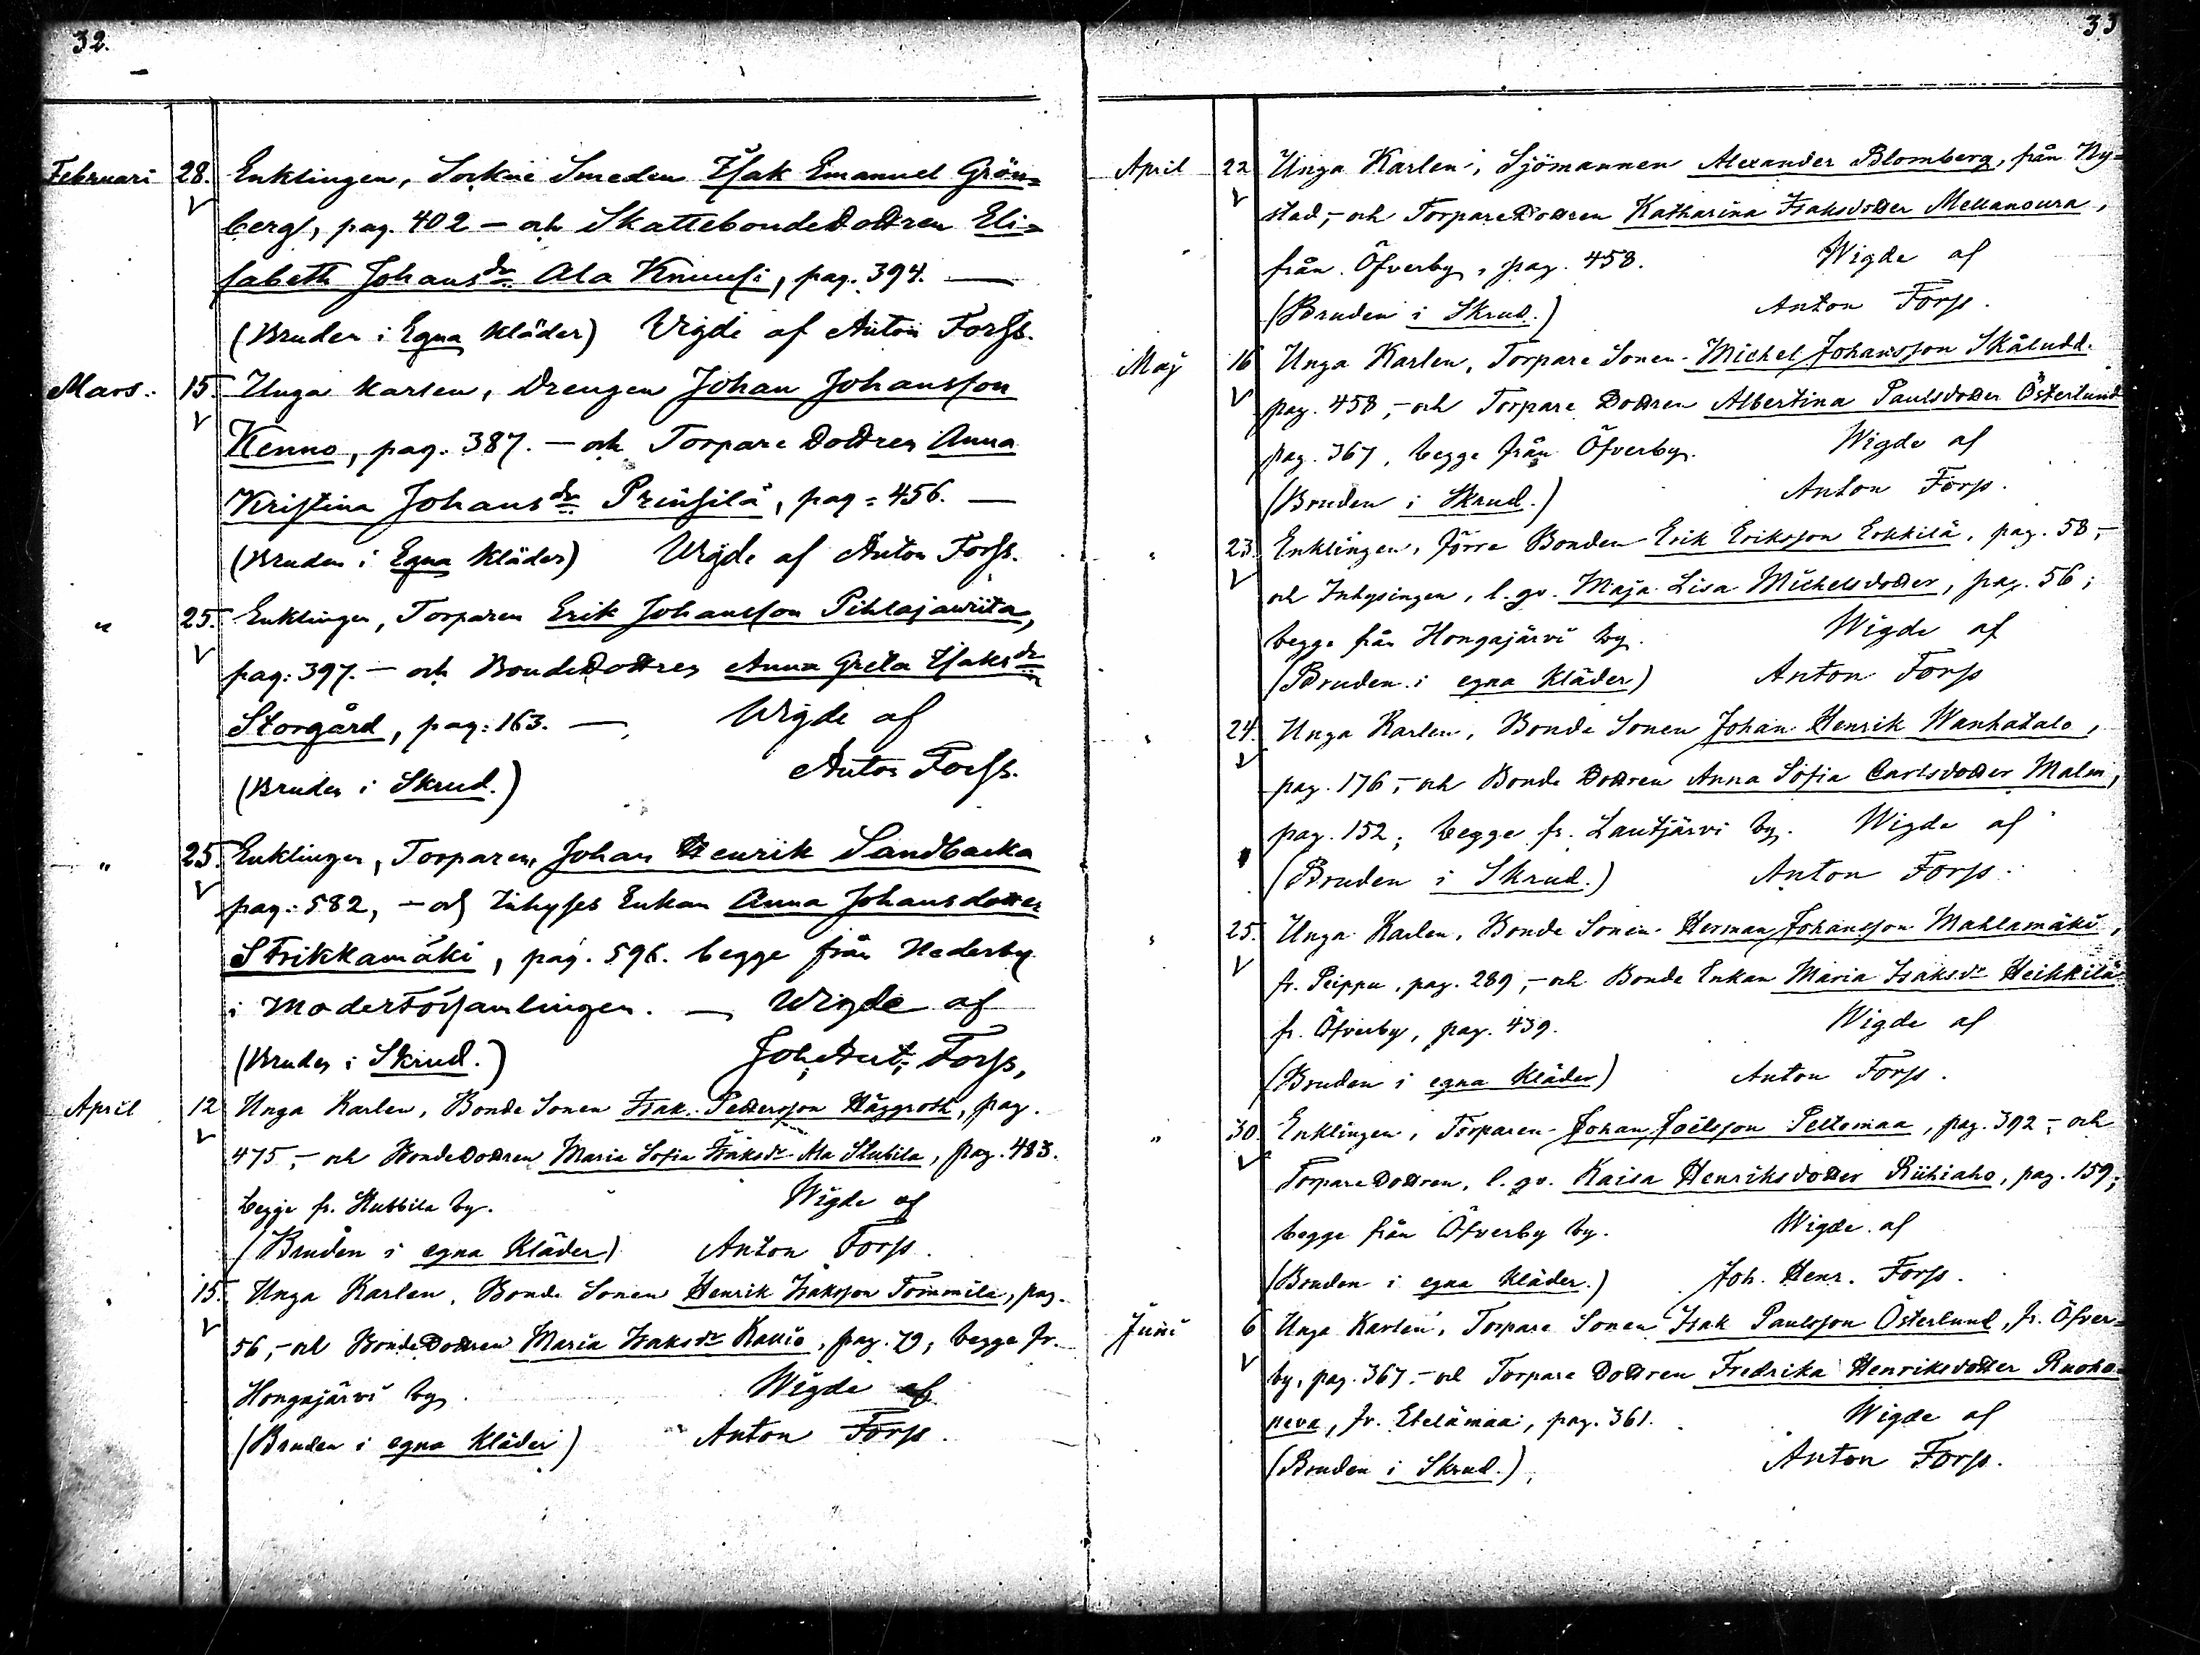 32.
Februari 28. Enklingen, Sockne Smeden Isak Emanuel Grön=
berg, pag. 402 – och Skattebonde Dottren Eli=
sabeth Johansdr Ala Knuusi, pag. 394. —
(Bruden i Egna Kläder) Vigde af Anton Forss.
Mars. 15. Unga Karlen, Drengen Johan Johansson
Kenno, pag. 387. – och Torpare Dottren Anna
Kristina Johansdr Prinsilä, pag = 456. —
(Bruden i Egna Kläder) Wigde af Anton Forss.
" 25. Enklingen, Torparen Erik Johansson Pihlajawiita,
pag: 397. – och Bonde Dottren Anna Greta Isaksdr
Storgård, pag: 163. — Wigde af
Anton Forss.
(Bruden i Skrud.)
" 25. Enklingen, Torparen, Johan Henrik Sandbacka
pag: 582, – och Inhyses Enkan Anna Johansdotter
Strikkamäki, pag. 596. begge från Nederby
i Moderförsamlingen. — Wigde af
(Bruden i Skrud.) Joh. Ant. Forss,
April 12 Unga Karlen, Bonde Sonen Isak Pettersson Häggroth, pag.
475, – och Bonde Dottren Maria Sofia Isaksdr Ala Stubila, pag. 483.
begge fr. Stubbila by. Wigde af
(Bruden i egna Kläder) Anton Forss.
15. Unga Karlen, Bonde Sonen Henrik Isaksson Tommila, pag.
56, – och Bonde Dottren Maria Isaksdr Kallio, pag. 79; begge fr.
Hongajärvi by. Wigde af
(Bruden i egna Kläder) Anton Forss.
33
April 22 Unga Karlen, Sjömannen Alexander Blomberg, från Ny=
stad, – och Torpare Dottren Katharina Isaksdotter Mellanoura,
från Öfverby, pag. 458. Wigde af
(Bruden i Skrud.) Anton Forss.
Maj 16 Unga Karlen, Torpare Sonen Michel Johansson Skåludd.
pag. 458, – och Torpare Dottren Albertina Paulsdotter Österlund
pag. 367, begge från Öfverby. Wigde af
(Bruden i Skrud.) Anton Forss.
" 23. Enklingen, förre Bonden Erik Eriksson Erkkilä, pag. 58, –
och Inhysingen, l. qv. Maja Lisa Michelsdotter, pag. 56;
begge från Hongajärvi by. Wigde af
(Bruden i egna Kläder) Anton Forss
" 24. Unga Karlen, Bonde Sonen Johan Henrik Wanhatalo,
pag. 176, – och Bonde Dottren Anna Sofia Carlsdotter Malm,
pag. 152; begge fr. Lautjärvi by. Wigde af
(Bruden i Skrud.) Anton Forss.
" 25. Unga Karlen, Bonde Sonen Herman Johansson Mahlamäki,
fr. Peippu, pag. 289, – och Bonde Enkan Maria Isaksdr Heikkilä
fr. Öfverby, pag. 439. Wigde af
(Bruden i egna Kläder) Anton Forss.
" 30. Enklingen, Torparen Johan Joelsson Peltomaa, pag. 392 – och
Torpare Dottren, l. qv. Kaisa Henriksdotter Riihiaho, pag. 159;
begge från Öfverby by. Wigde af
(Bruden i egna Kläder.) Joh. Henr. Forss.
Juni 6 Unga Karlen, Torpare Sonen Isak Paulsson Österlund, fr. Öfver=
by, pag. 367. – och Torpare Dottren Fredrika Henriksdotter Ruoho=
neva, fr. Etelämaa, pag. 361. Wigde af
(Bruden i Skrud.) Anton Forss.